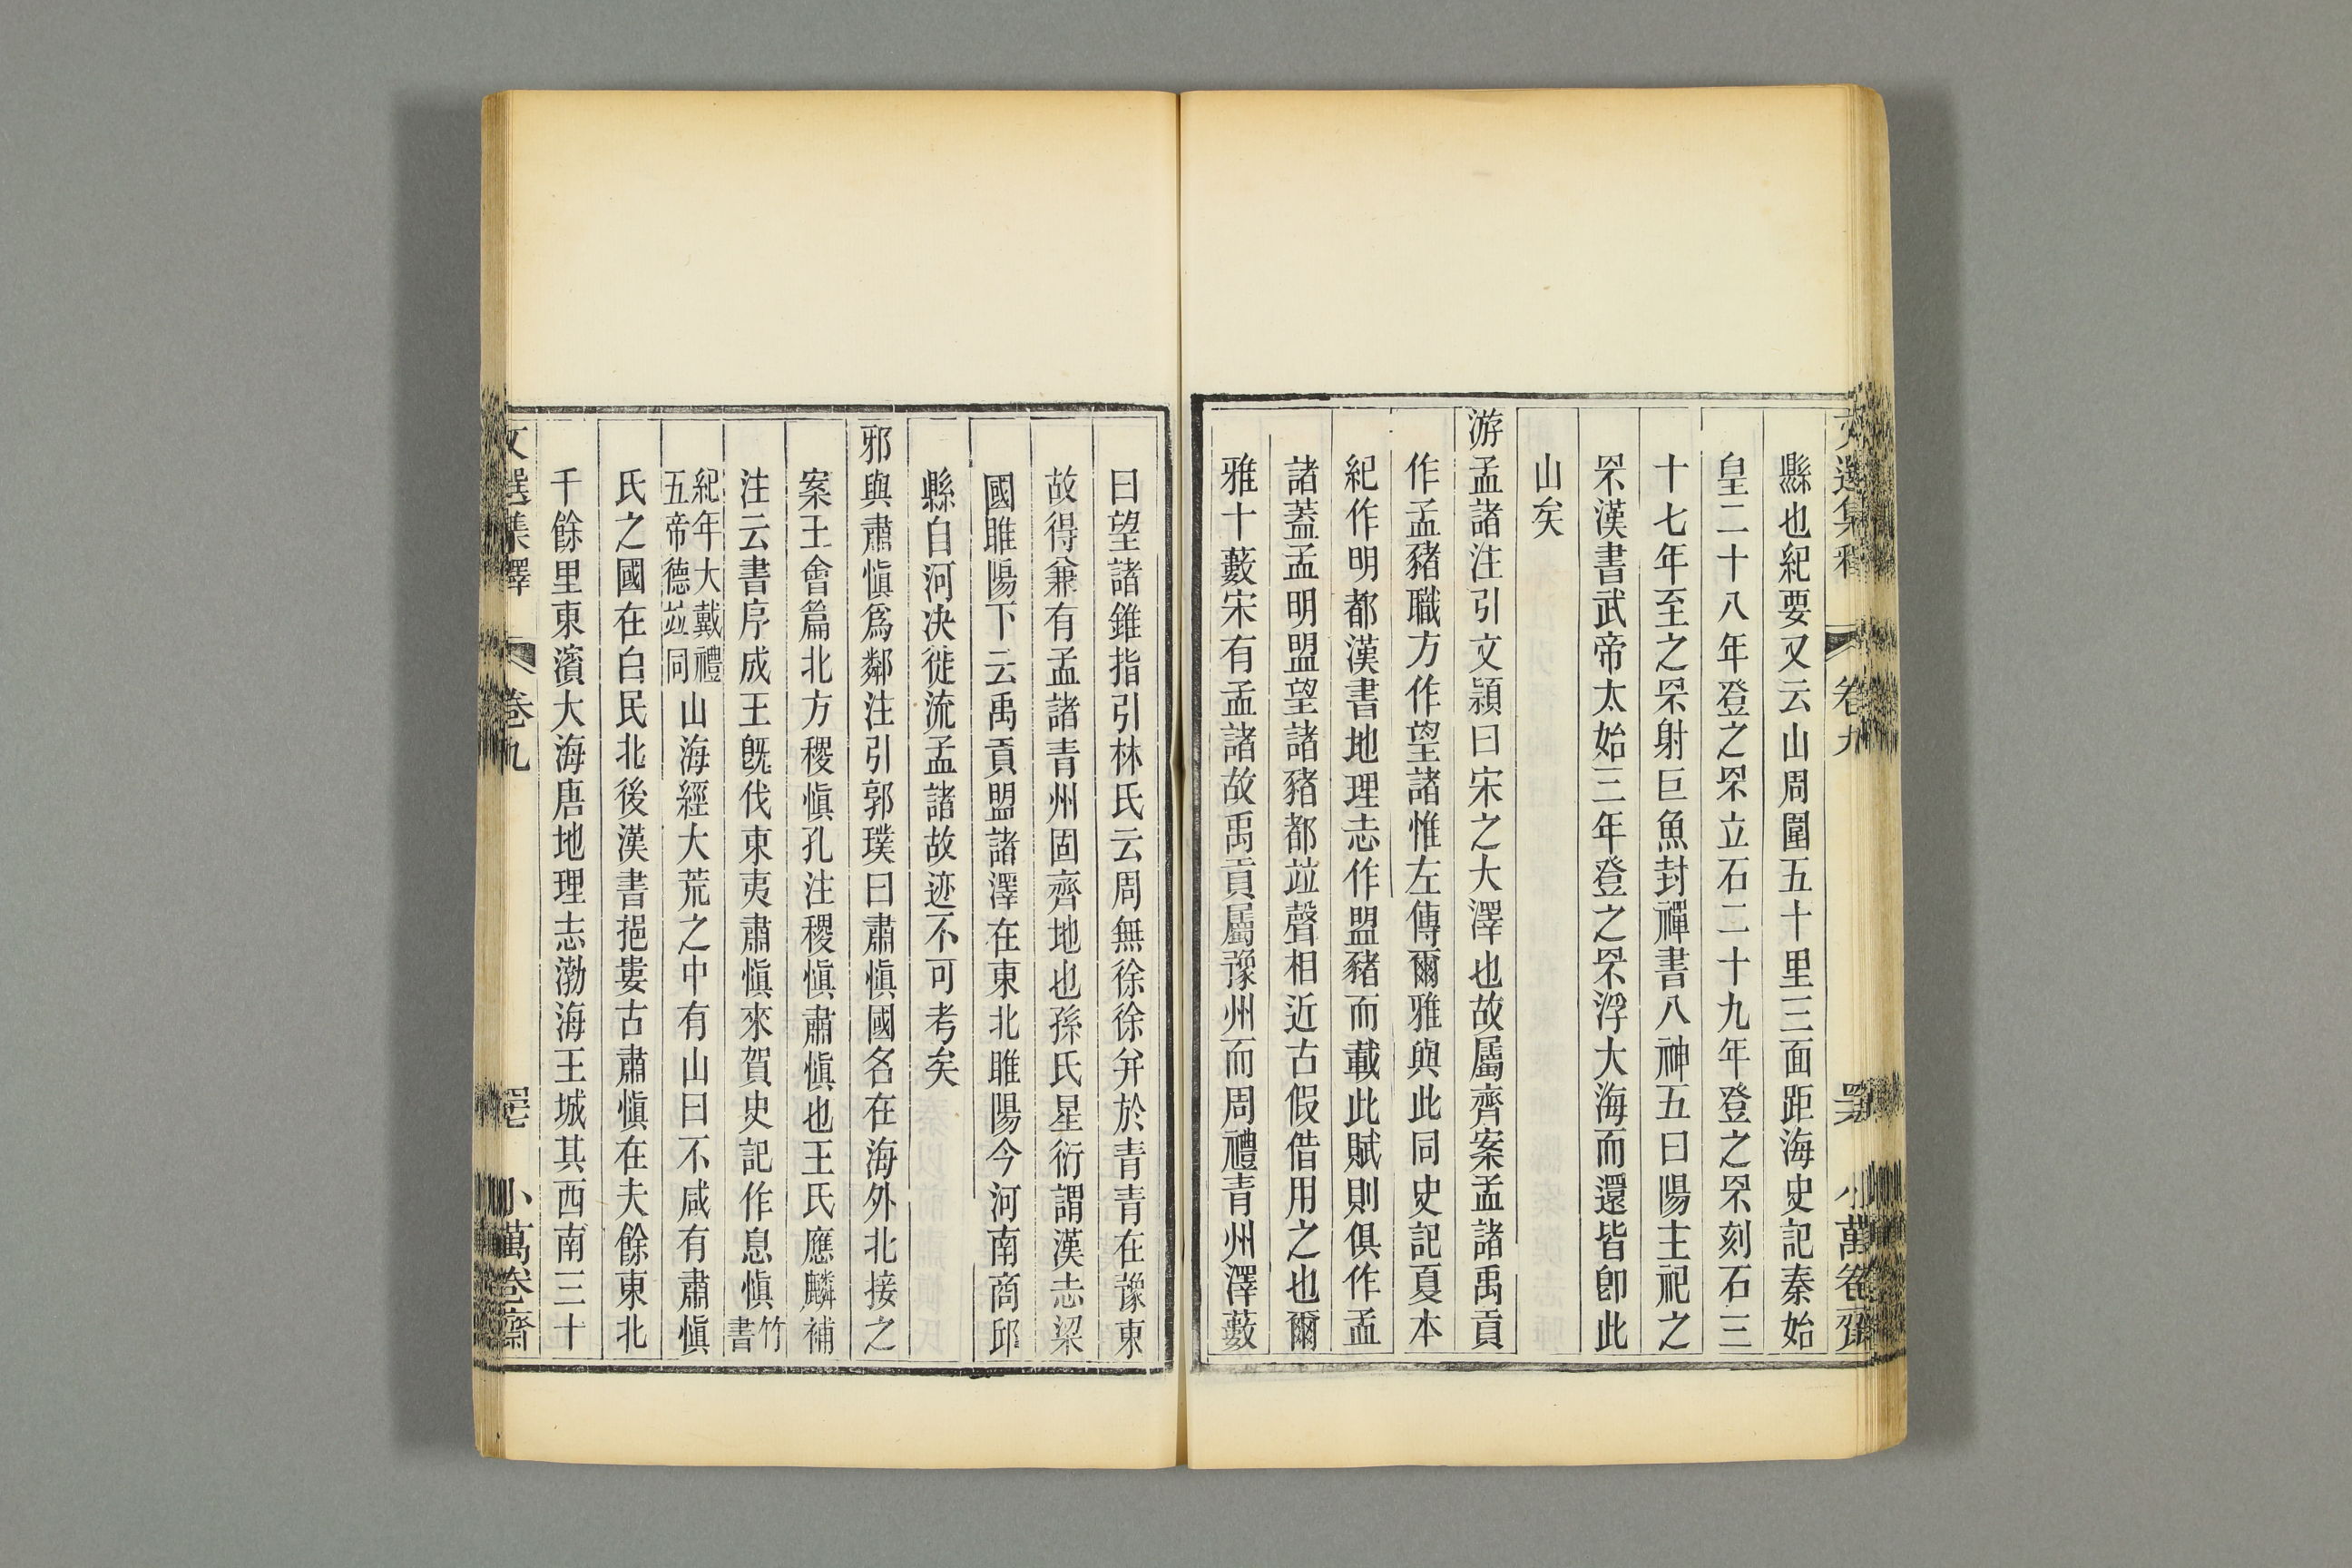 文選集釋 卷九 小萬卷齋
縣也紀要又云山周圍五十里三面距海史記秦始
皇二十八年登之罘立石二十九年登之罘刻石三
十七年至之罘射巨魚封禪書八神五曰陽主祀之
罘漢書武帝太始三年登之罘浮大海而還皆卽此
山矣
游孟諸注引文穎曰宋之大澤也故屬齊案孟諸禹貢
作孟豬職方作望諸惟左傳爾雅與此同史記夏本
紀作明都漢書地理志作盟豬而載此賦則俱作孟
諸蓋孟明盟望諸豬都竝聲相近古假借用之也爾
雅十藪宋有孟諸故禹貢屬豫州而周禮青州澤藪
曰望諸錐指引林氏云周無徐徐弁於青青在豫東
故得兼有孟諸青州固齊地也孫氏星衍謂漢志梁
國睢陽下云禹貢盟諸澤在東北睢陽今河南商邱
縣自河決徙流孟諸故迹不可考矣
邪與肅愼爲鄰注引郭璞曰肅愼國名在海外北接之
案王會篇北方稷愼孔注稷愼肅愼也王氏應麟補
注云書序成王旣伐東夷肅愼來賀史記作息愼竹書
紀年大戴禮五帝德竝同山海經大荒之中有山曰不咸有肅愼
氏之國在白民北後漢書挹婁古肅愼在夫餘東北
千餘里東濱大海唐地理志渤海王城其西南三十
文選集釋 卷九 小萬卷齋